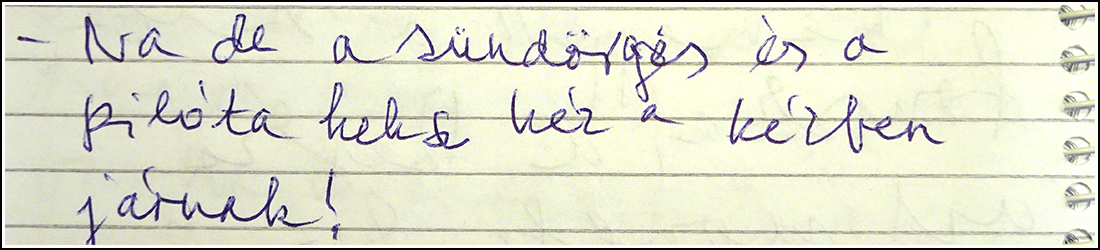 - Na de a sündörgés és a
pilóta keksz kéz a kézben
járnak!